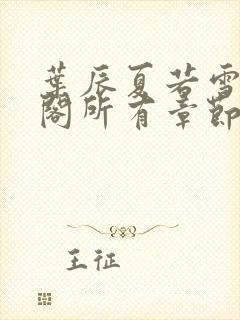 葉辰夏若雪
閣所有章節
王征